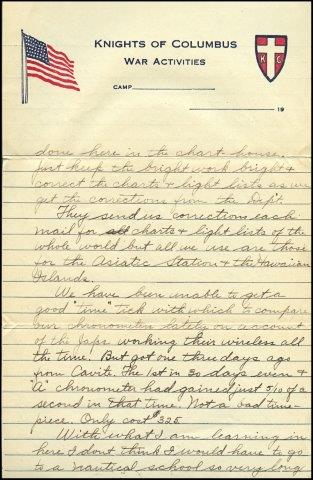 KNIGHTS OF COLUMBUS
WAR ACTIVITIES
K C
CAMP
19
done here in the chart house.
Just keep the bright work bright &
correct the charts & light lists as we
get the corrections from the Dep't.
They send us corrections each
mail for all charts & light lists of the
whole world but all we use are those
for the Asiatic Station & the Hawaiian
Islands.
We have been unable to get a
good "time" tick with which to compare
our chronometers lately on account
of the Japs working their wireless all
the time. But got one three days ago
from Cavite. The 1st in 30 days even &
"A" chronometer had gained just 5/10 of a
second in that time. Not a bad time-
piece. Only cost $325
With what I am learning in
here I dont think I would have to go
to a nautical school so very long